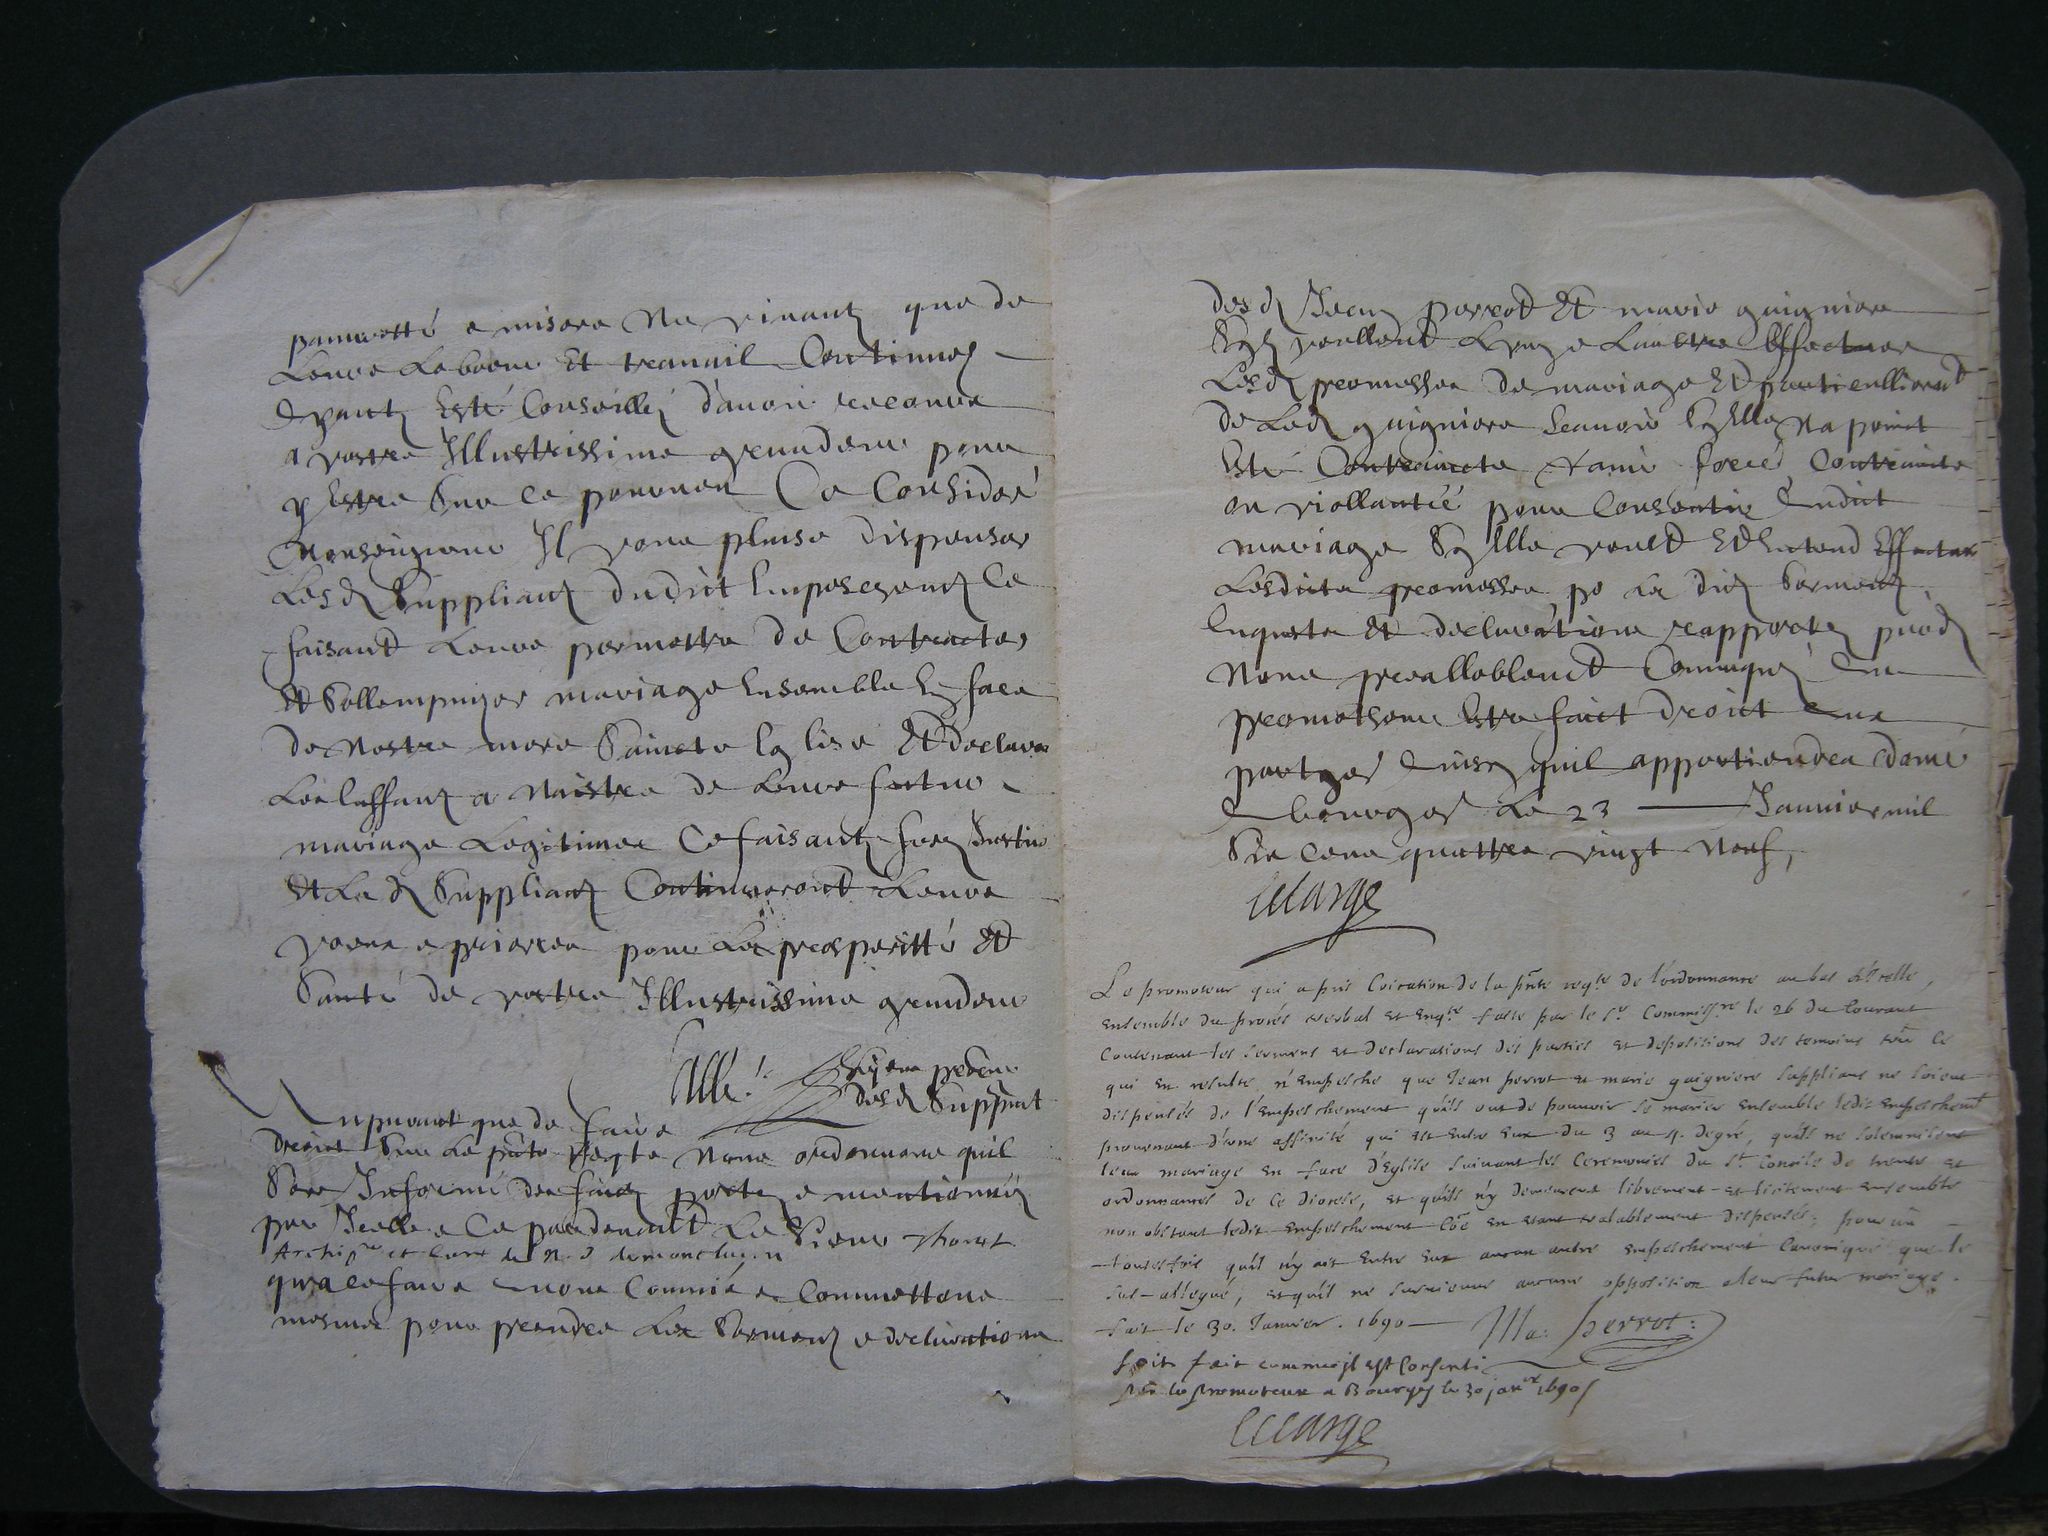 pauvretté e misere Ne vivants que de
Leurs Labeurs Et travail Continuel
Ayants Esté Conseillés d'avoir recours
a vostre Illustrissime grandeur pour
y Estre Sur ce pourveu Ce Considéré
Monseigneur Il vous plaise dispenser
Lesd Suppliants dudict Empeschement Ce
faisant Leurs permettre de Contracter
Et Sollempnizer mariage Ensemble En face
de Nostre mere Saincte Eglise Et declarer
Les Enffans a Naistre de Leurs futur
mariage Legitimes Ce faisant ferez Justice
Et Les d Suppliants Continueront Leurs
voeux e prieres pour La prosperitté Et
Santé de vostre Illustrissime grandeur
desd Suppliant
Auparavant que de faire
droict Sur La pnte Reqte Nous ordonnons quil
Sera Informé des faicts portez e mentionnés
par Icelle e Ce pardevant Le Sieur Thonet
Archipre et Curé de N. D de monlucon
qua ce faire Avons Commis e Commettons
mesmes pour prendre Les Serments e declarations
desd Jean perrot Et marie guigniere
Sy Ilz veullent L'un e L'aultre Effectuer
Lesd promesses de mariage Et particullierement
de Lad guigniere Scavoir Sy Elle Na point
Esté Contraincte par force Contraincte
ou viollantée pour Consentir Audict
mariage Sy Elle veult Et Entend Effectuer
Lesdictes promesses po Les dits Serments,
Enqueste Et declarations rapportez pardt
Nous preallablement Communiqué Au
promotheur Estre faict droict Aux
partyes Ainsy quil appartiendra donné
A bourges Le 23 Janvier mil
Six Cens quattre vingt Neuf,
Lelarge
Le promoteur qui a pris Coication de la pnte reqte de l'ordonnance au bas d'icelle,
ensemble du procés verbal et enqte faite par le Sr Commissre le 26 du Courant
Contenant les sermens et declarations des parties et depositions des temoins tout ce
qui en resulte, n'empesche que Jean perrot et marie guigniere supplians ne soient
dispensés de l'empeschement qu'ils ont de pouvoir se marier ensemble ledit empeschemt
provenant d'une affinité qui est entre eux du 3 au 4. degré, qu'ils ne solemnisent
leur mariage en face d'Eglise suivant les Ceremonies du St Concile de trente et
ordonnances de ce diocese, et qu'ils n'y demeurent librement et licitement ensemble
non obstant ledit empeschement Cõe en etant valablement dispensés, pourvu
toutesfois qu'il n'y ait entre eux aucun autre empeschement Canonique que le
sus-allegué, et qu'il ne survienne aucune opposition a leur futur mariage.
fait le 30. Janvier. 1690 Ma: perrot:
soit fait comme il est Consenti
par le promoteur a Bourges le 30 janer 1690
Lelarge